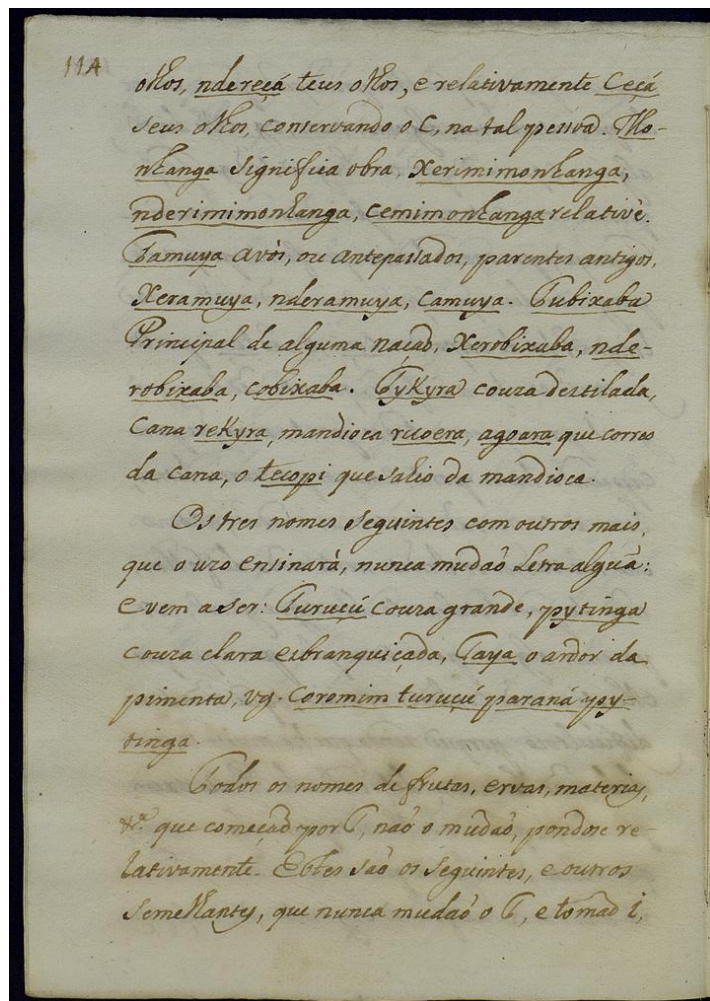 114
olhos, ndereçá teus olhos, e relativamente Ceçá
seus olhos, conservando o C, na tal pessoa. Mo-
nhanga significa obra, Xerimimonhanga,
nderimimonhanga, cemimonhanga relativè.
Tamuya avós, ou antepassados, parentes antigos,
Xeramuya, nderamuya, camuya. Tubixaba
Principal de alguma naçaõ, Xerobixaba, nde-
robixaba, cobixaba. Tykyra couza destilada,
Cana rekyra, mandioca ricoera, agoara que correo
da cana, o tecopi que sahio da mandioca.
Os tres nomes seguintes com outros mais,
que o uzo ensinará, nunca mudaõ letra alguã:
e vem a ser: Turuçú couza grande, pytinga
couza clara esbranquiçada, Taya o ardor da
pimenta, vg. Coromim turuçú paraná py-
tinga.
Todos os nomes de frutas, ervas, materias,
&ª. que começaõ por T, naõ o mudaõ, pondose re-
lativamente. Estes saõ os seguintes, e outros
semelhantes, que nunca mudaõ o T, e tomaõ i,